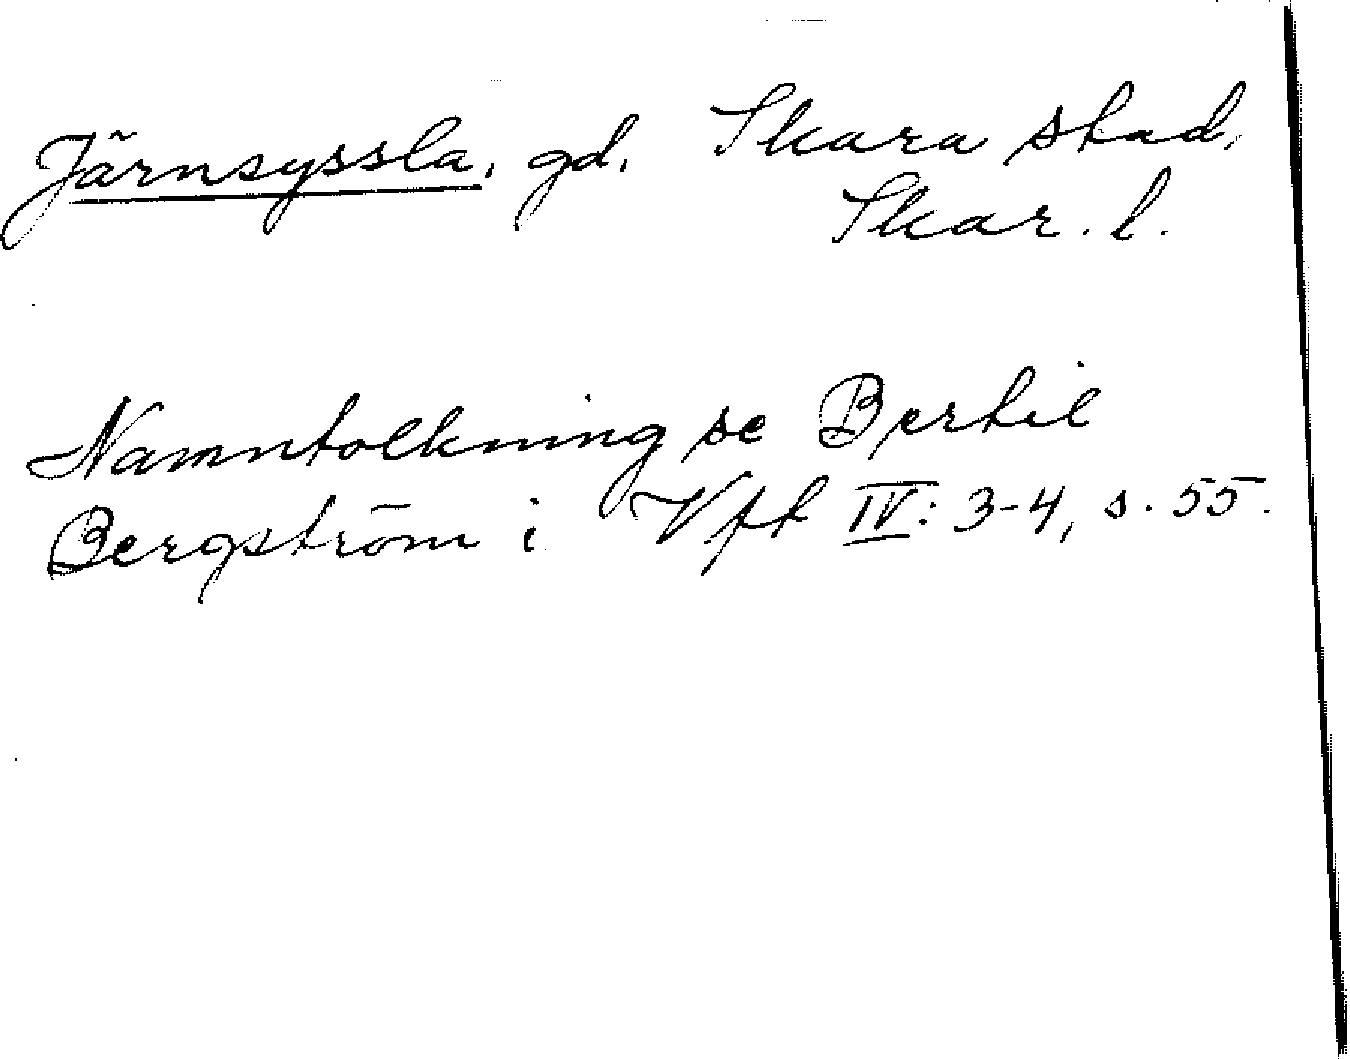 Järnsyssla, gd. Skara stad,
Skar. l.
Namntolkning se Bertil
Bergström i Vft IV: 3-4, s. 55.